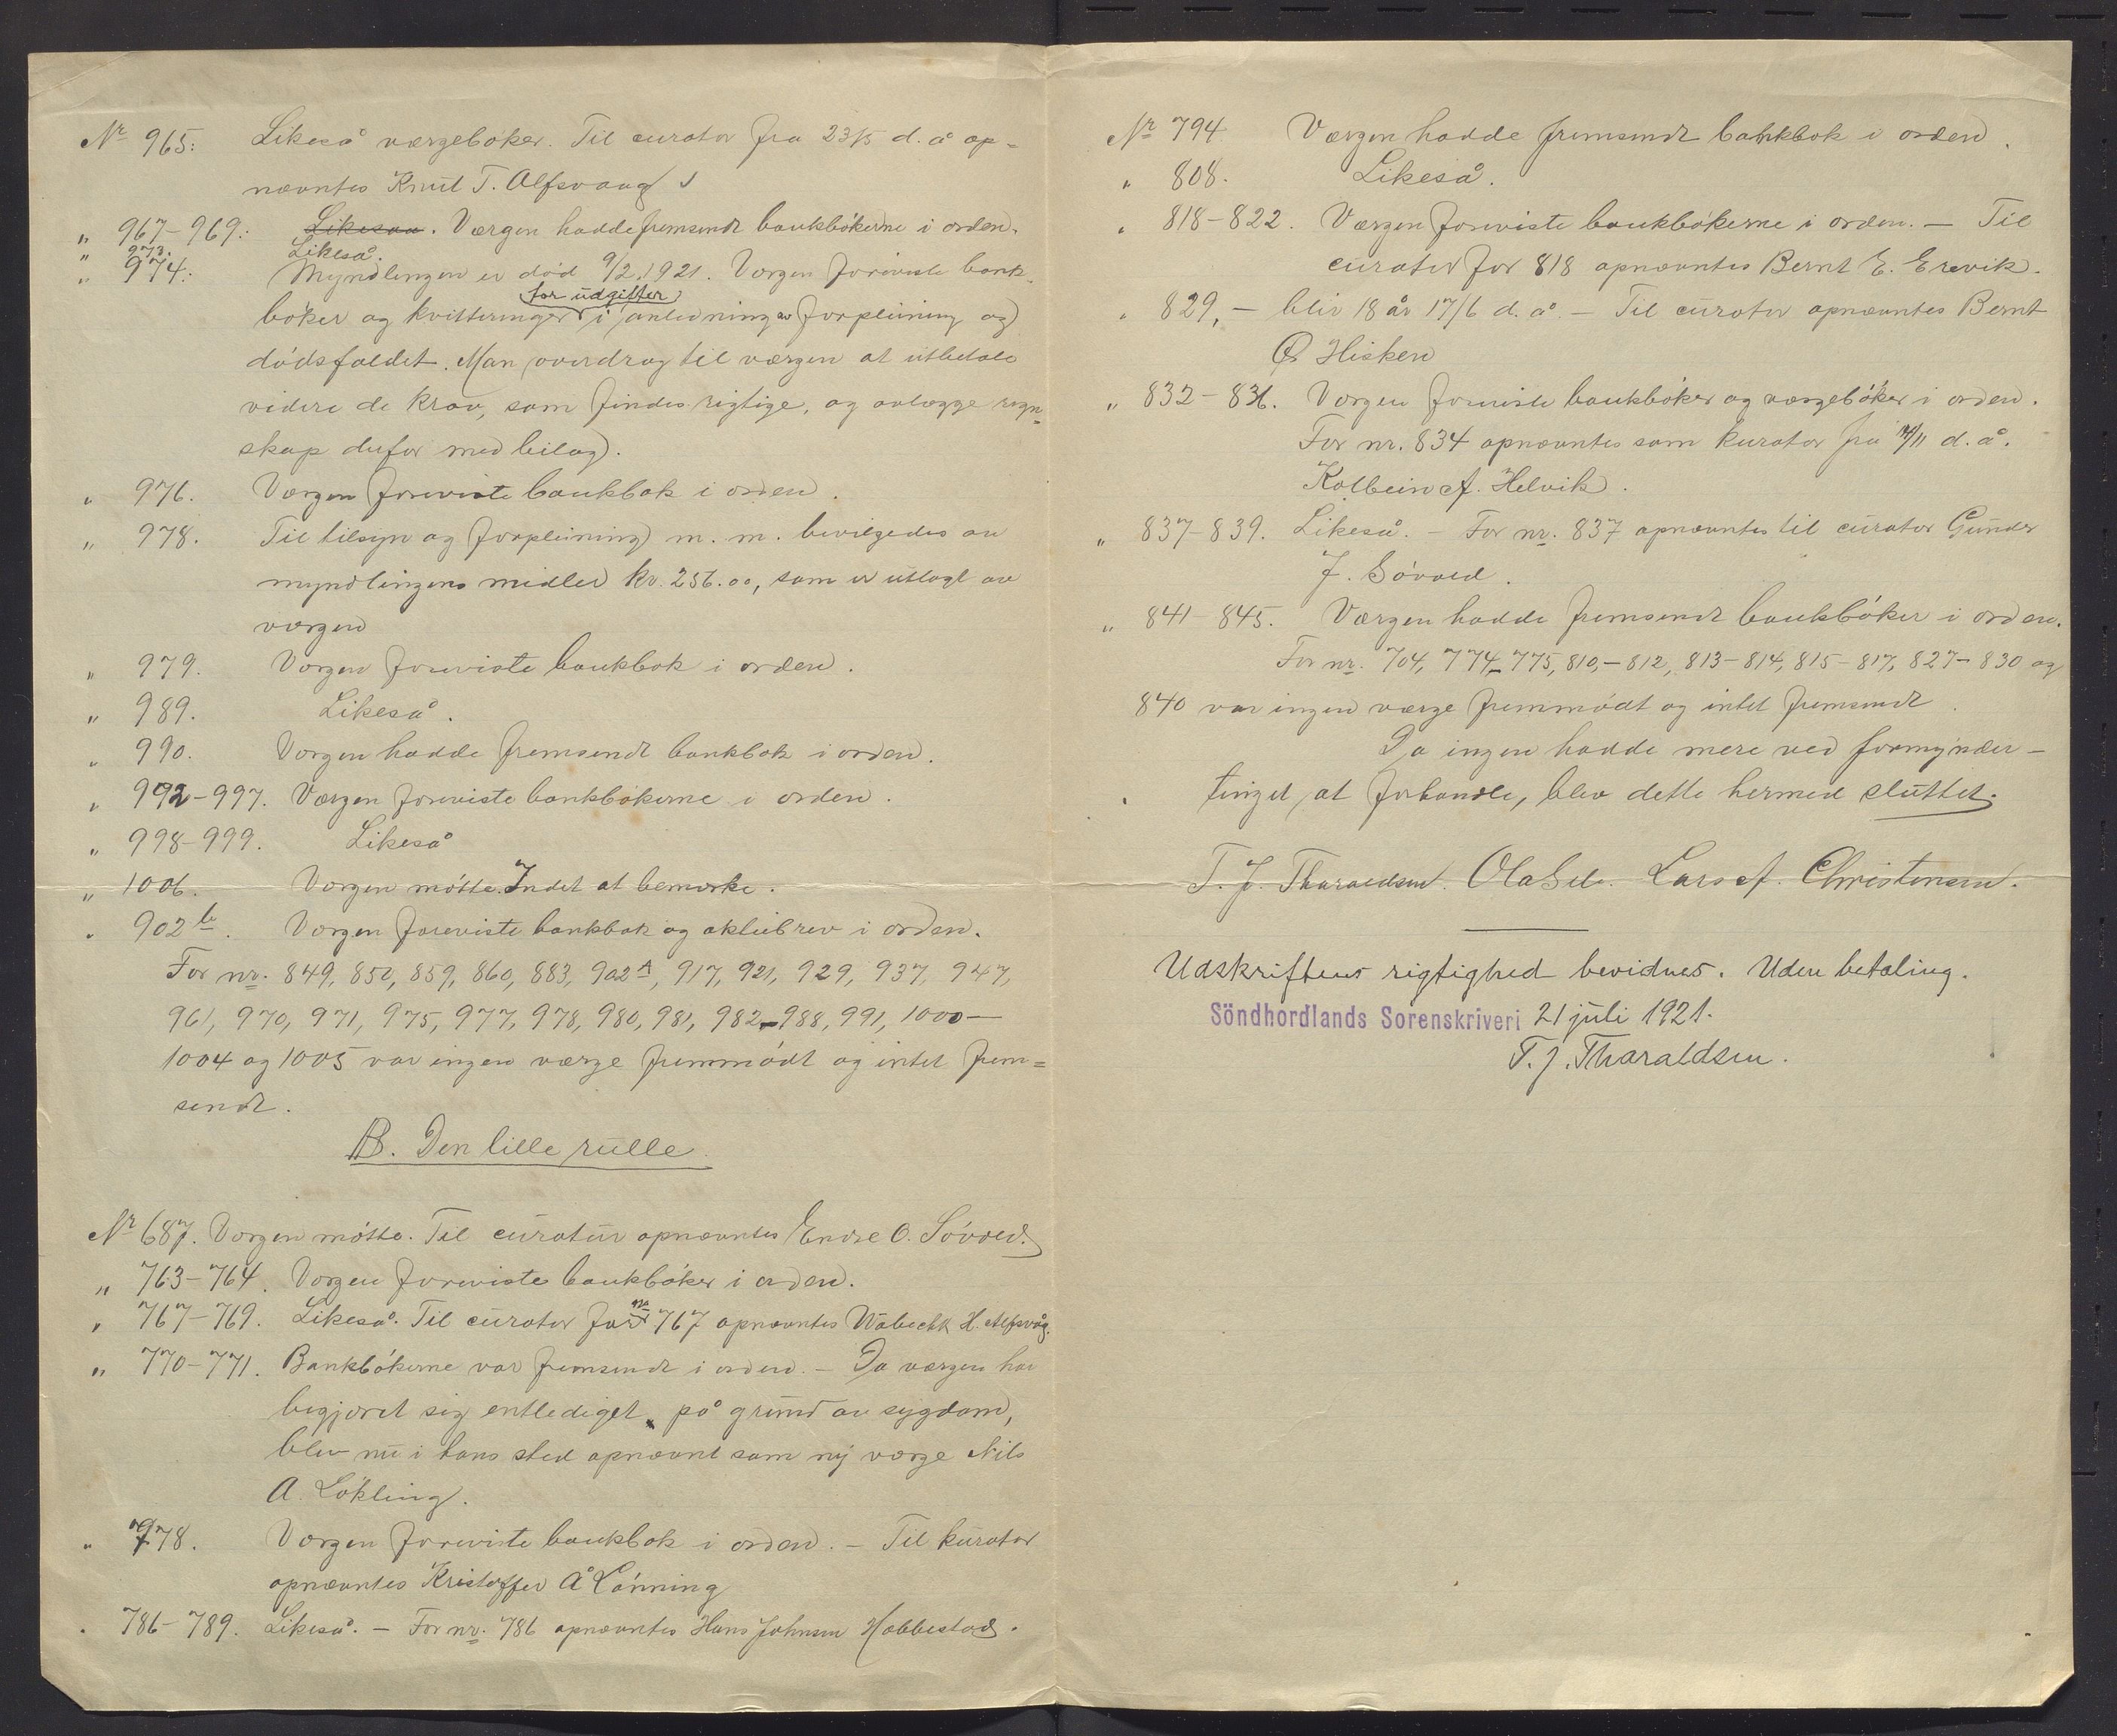 Nr 965: Likeså værgebøker. Til curator fra 23/5 d. å op-
nævntes Knut T. Alfsvaag
" 967-969: Likesaa. Værgen hadde fremsendt bankbøkerne i orden.
" 973. Likeså.
" 974: Myndlingen er død 9/2 1921. Værgen foreviste bank-
for udgifter
bøker og kvitteringer i anledning av forpleining og
dødsfaldet. Man overdrog til værgen at utbetale
videre de krav, som findes rigtige, og avlægge regn=
skap derfor med bilag.
" 976. Værgen foreviste bankbok i orden.
" 978. Til tilsyn og forpleining m. m. bevilgedes av
myndlingens midler kr. 256.00, som er utlagt av
værgen
" 979. Værgen foreviste bankbok i orden.
" 989. Likeså.
" 990. Værgen hadde fremsendt bankbok i orden.
" 992-997. Værgen foreviste bankbøkerne i orden.
" 998-999. Likeså
" 1006. Værgen møtte. Indet at bemærke.
" 902 b. Værgen foreviste bankbok og aktiebrev i orden.
For nr. 849, 850, 859, 860, 883, 902 A, 917, 921, 929, 937, 947,
961, 970, 971, 975, 977, 978, 980, 981, 982-988, 991, 1000-
1004 og 1005 var ingen værge fremmødt og intet frem=
sendt.
B. Den lille rulle.
Nr 687. Værgen møtte. Til curatur opnævntes Endre O. Søvold.
" 763-764. Værgen foreviste bankbøker i orden.
" 767-769. Likeså. Til curator for nr 767 opnævntes H. Alfsvåg.
" 770-771. Bankbøkerne var fremsendt i orden. - Da værgen har
begjæret sig entlediget på grund av sygdom,
blev nu i hans sted opnævnt som ny værge Nils
A. Løkling.
" 778. Værgen foreviste bankbok i orden. - Til kurator
opnævntes Kristoffer Å Lønning
" 786-789. Likeså. - For nr. 786 opnævntes Hans Johnsen Habbestad.
Nr 794 Værgen hadde fremsendt bankbok i orden.
" 808. Likeså.
" 818-822. Værgen foreviste bankbøkerne i orden. - Til
curator for 818 opnævntes Bernt E. Erevik.
" 829, - bliv 18 år 17/6 d. å. - Til curator opnævntes Bernt
Ø Hisken
" 832-836. Værgen foreviste bankbøker og værgebøker i orden.
For nr. 834 opnævntes som kurator fra /11 d. å.
Kolbein A. Helvik.
" 837-839. Likeså. - For nr. 837 opnævntes til curator Gunder
J. Søvold.
" 841-845. Værgen hadde fremsendt bankbøker i orden.
For nr. 704, 774-775, 810,-812, 813-814, 815-817, 827-830 og
840 var ingen værge fremmødt og intet fremsendt.
Da ingen hadde mere ved formynder-
tinget at forhandle, blev dette hermed sluttet.
T. J. Tharaldsen. Lars A. Christensen.
Udskriftens rigtighed bevidnes. Uden betaling.
Söndhordlands Sorenskriveri 21 juli 1921.
T. J. Tharaldsen.